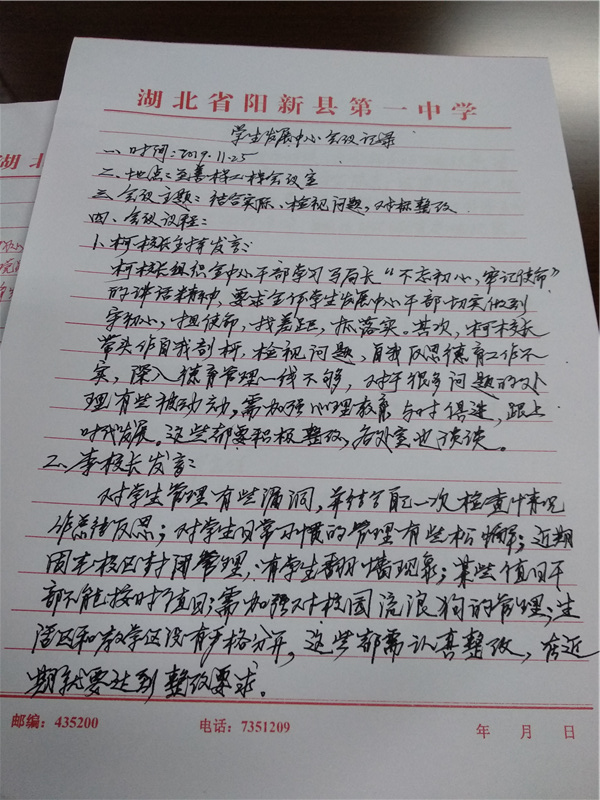 湖北省阳新县第一中学
学生发展中心会议记录
一、时间:2019.11.25
二、地点:至善楼二楼会议室
三、会议主题:结合实际、检视问题,对标整改
四、会议议程:
1、柯校长主持发言:
柯校长组织全中心干部学习马局长“不忘初心,牢记使命”
的讲话精神,要求全体学生发展中心干部切实做到
守初心,担使命,找差距,抓落实。其次,柯校长
带头作自我剖析,检视问题,自我反思德育工作不
实,深入德育管理一线不够,对于很多问题的处
理有些被动,需加强心理教育与时俱进,跟上
时代发展。这些都要积极整改,各处室也谈谈。
2、李校长发言:
对学生管理有些漏洞,并结合一次检查情况
作总结反思;对学生日常习惯的管理有些松懈;近期
周末校区封闭管理,有学生翻墙现象;某些值日干
部不能按时值日;需加强对校园流浪狗的管理;生
活区和教学区没有严格分开,这些都需认真整改,在近
期就要达到整改要求。
邮编:435200
电话:7351209
年 月 日
湖北